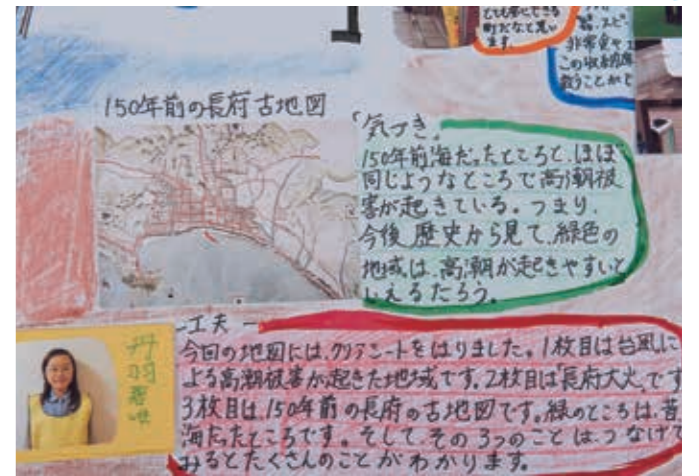 とても安心できる
町だなと思い
ます。
非常食や
この収納庫
救うことが
150年前の長府古地図
「気づき」
150年前海だったところと、ほぼ
同じようなところで高潮被
害が起きている。つまり、
今後、歴史から見て、緑色の
地域は、高潮が起きやすいと
いえるだろう。
工夫
今回の地図には、クリアシートをはりました。1枚目は台風に
よる高潮被害が起きた地域です。2枚目は「長府大火」です
3枚目は、150年前の長府の古地図です。緑のところは、昔
海だったところです。そして、その3つのことは、つなげて
みるとたくさんのことがわかります。
丹羽